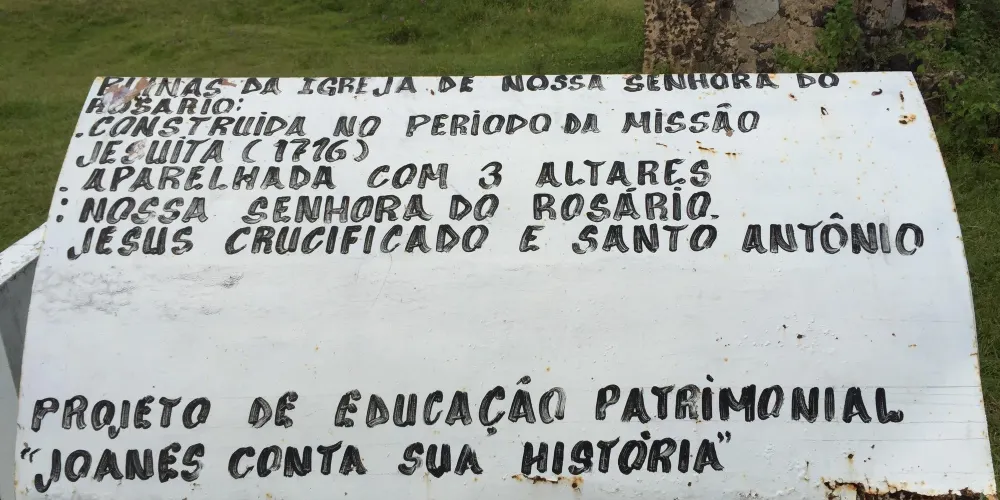 RUINAS DA IGREJA DE NOSSA SENHORA DO
ROSARIO:
.CONSTRUIDA NO PERIODO DA MISSÃO
JESUITA (1716)
. APARELHADA COM 3 ALTARES
: NOSSA SENHORA DO ROSÁRIO.
JESUS CRUCIFICADO E SANTO ANTÔNIO
PROJETO DE EDUCAÇÃO PATRIMONIAL
"JOANES CONTA SUA HISTÓRIA"